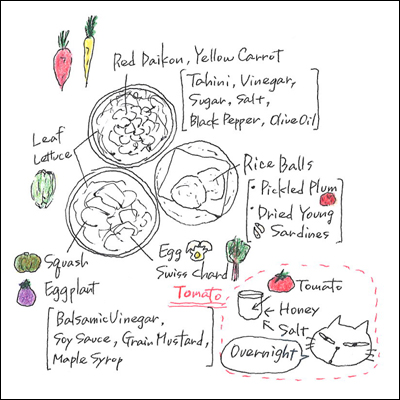 Red Daikon, Yellow Carrot
Tahini, Vinegar,
Sugar, Salt,
Black Pepper, Olive Oil
Leaf
Lettuce
Rice Balls
• Pickled Plum
• Dried Young
Sardines
Squash
Eggplant
Egg
Swiss Chard
Tomato
Balsamic Vinegar,
Soy Sauce, Grain Mustard,
Maple Syrop
Tomato
Honey
Salt
Overnight